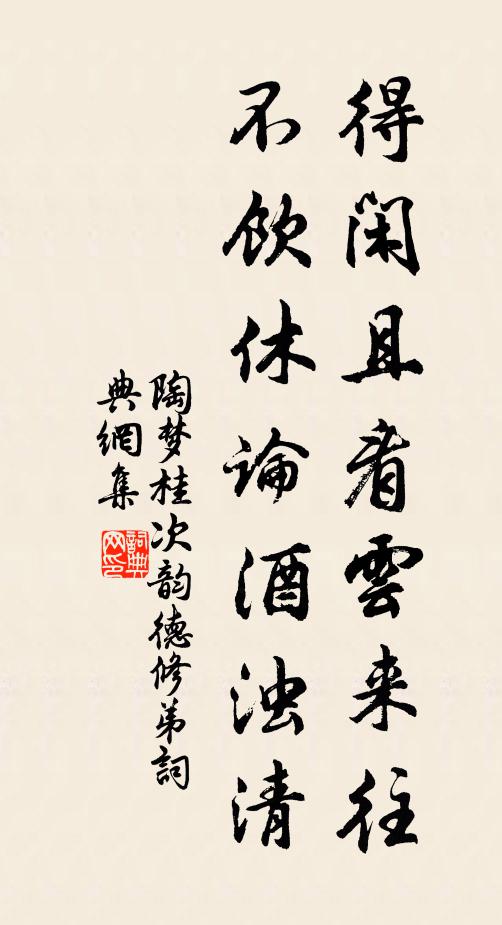 得闲且看雲来往
不飲休論酒浊清
陶梦桂次韵德修弟詞
典網集
詞典网印